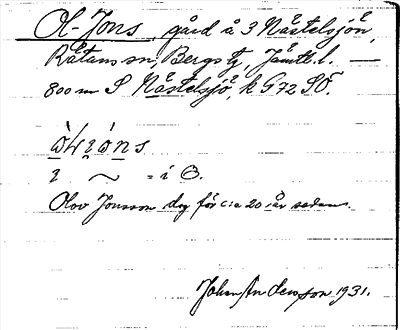 Ol-Jons, gård å 3 Nästelsjön,
Rätans sn, Bergs tg, Jämtl. l. —
800 m S Nästelsjö, k G 72 SÖ.
i ~ = i
Olov Jonsson dog för c:a 20 år sedan.
Johan Andersson 1931.